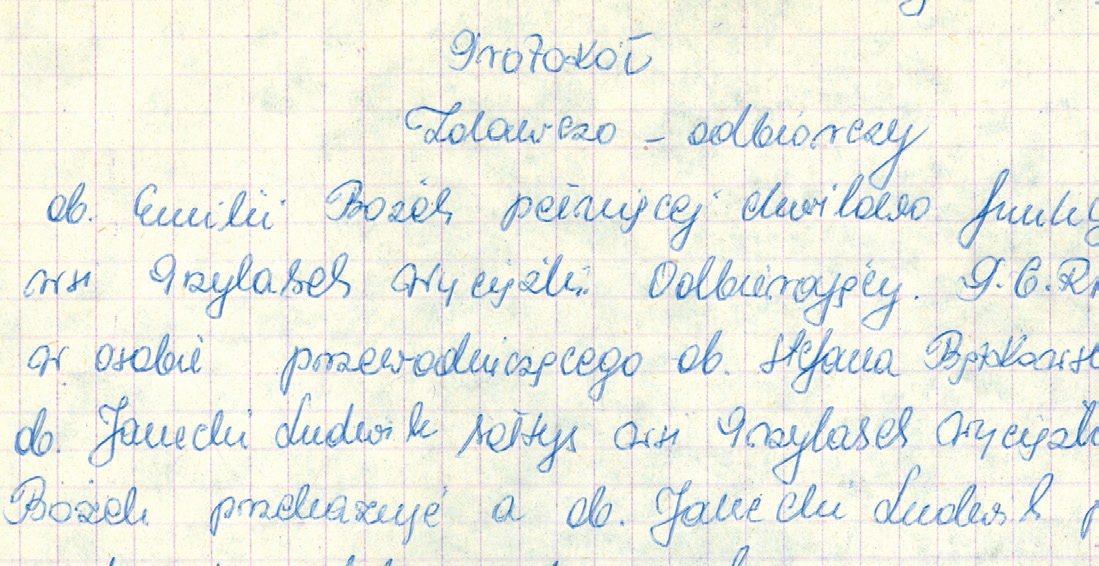 Protokół
Zdawczo - odbiorczy
ob. Emilii Bożek pełniącej chwilowo
wsi Przyłasek Wyciąski. Odbierający. P.G.R
w osobie przewodniczącego ob. Stefana
ob. Janecki Ludwik sołtys wsi Przylasek
Bożek przekazuje a ob. Janecki Ludwik